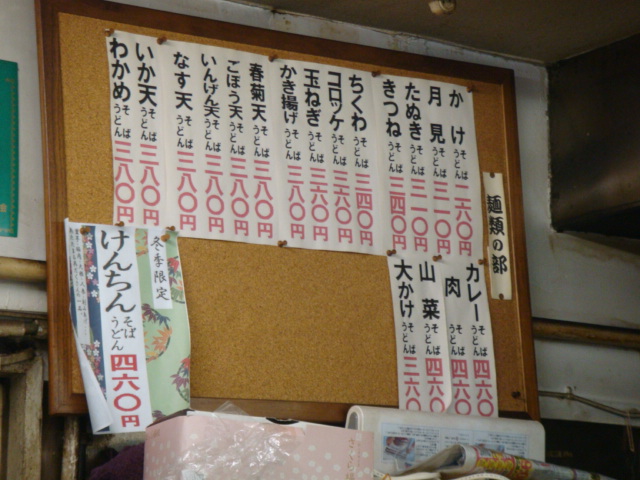 麺類の部
かけ そば うどん 二六〇
月見 そば うどん 三一〇
たぬき そば うどん 三一〇
きつね そば うどん 三四〇
ちくわ そば うどん 三四〇
コロッケ そば うどん 三六〇
玉ねぎ そば うどん 三六〇
かき揚げ そば うどん 三八〇
春菊天 そば うどん 三八〇
ごぼう天 そば うどん 三八〇
いんげん天 そば うどん 三八〇
なす天 そば うどん 三八〇
いか天 そば うどん 三八〇
わかめ そば うどん 三八〇
カレー そば うどん 四六〇
肉 そば うどん 四六〇
山菜 そば うどん 四六〇
大かけ そば うどん 三六〇
冬季限定
けんちん そば うどん 四六〇円